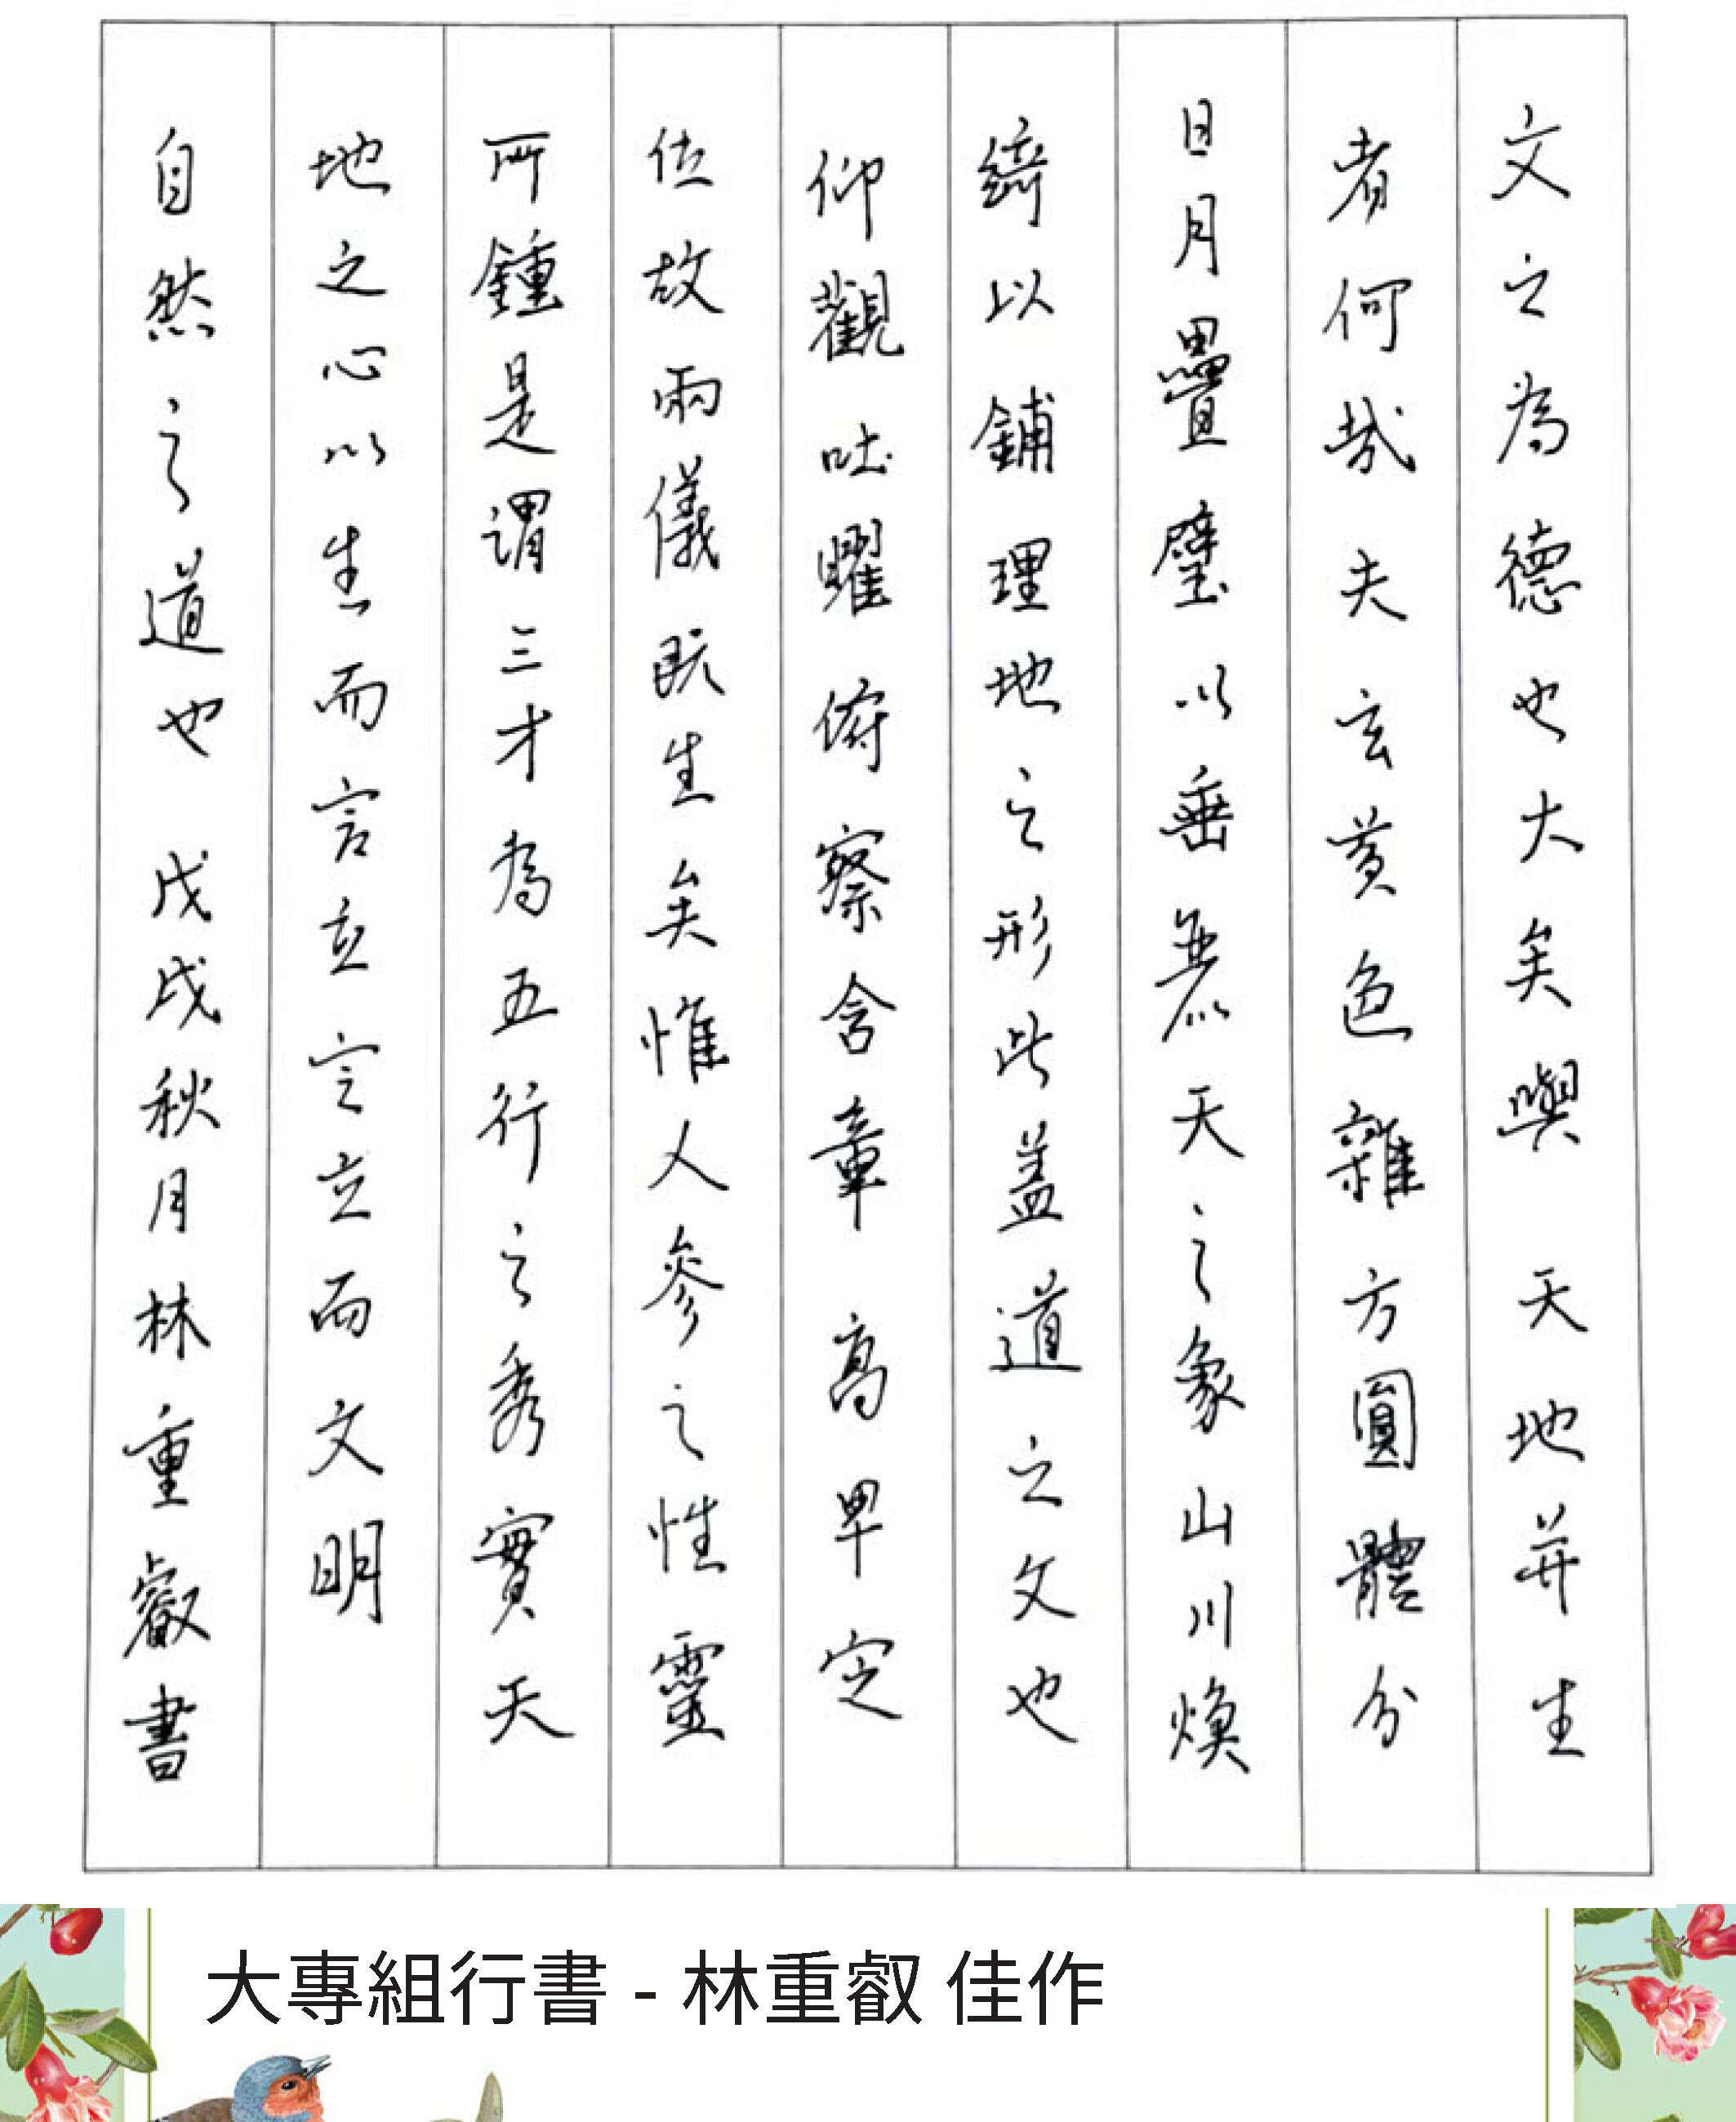 文之為德也大矣與天地并生
者何哉夫玄黃色雜方圓體分
日月疊璧以垂麗天之象山川煥
綺以鋪理地之形此蓋道之文也
仰觀吐曜俯察含章高卑定
位故兩儀既生矣惟人參之性靈
所鍾是謂三才為五行之秀實天
地之心心生而言立言立而文明
自然之道也 戊戌秋月林重叡書
大專組行書 - 林重叡 佳作